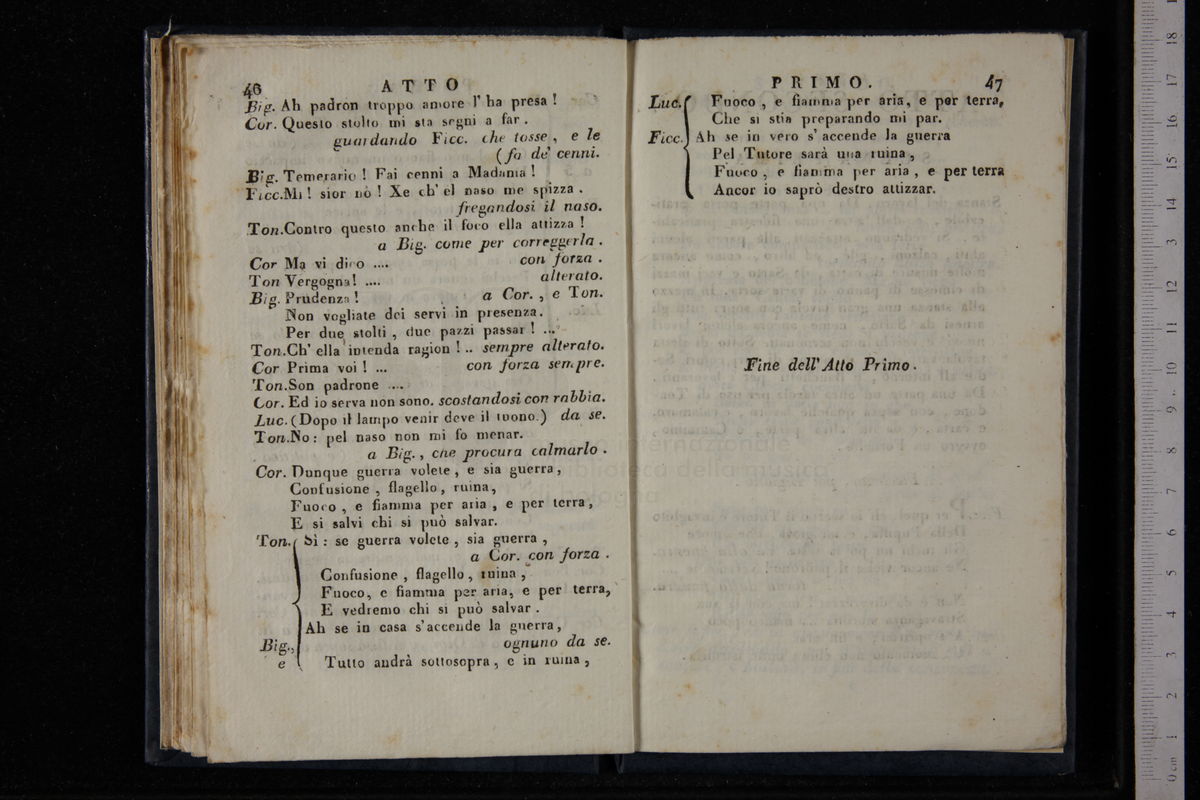 46 ATTO
Big. Ah padron troppo amore l' ha presa !
Cor. Questo stolto mi sta segni a far .
guardando Ficc. che tosse , e le
(fa de' cenni.
Big. Temerario ! Fai cenni a Madama !
Ficc.Mi ! sior nò ! Xe ch' el naso me spizza .
fregandosi il naso.
Ton.Contro questo anche il foco ella attizza !
a Big. come per correggerla .
Cor Ma vi dico .... con forza .
Ton Vergogna! .... alterato.
Big. Prudenza ! a Cor. , e Ton.
Non vogliate dei servi in presenza.
Per due stolti , due pazzi passar ! ...
Ton.Ch' ella intenda ragion ! .. sempre alterato.
Cor Prima voi ! ... con forza sempre.
Ton.Son padrone ....
Cor. Ed io serva non sono. scostandosi con rabbia.
Luc. (Dopo il lampo venir deve il tuono.) da se.
Ton.No : pel naso non mi fo menar.
a Big. , che procura calmarlo .
Cor. Dunque guerra volete , e sia guerra ,
Confusione , flagello , ruina ,
Fuoco , e fiamma per aria , e per terra ,
E si salvi chi si può salvar.
Ton. Sì : se guerra volete , sia guerra ,
a Cor. con forza .
Confusione , flagello , ruina ,
Fuoco, e fiamma per aria, e per terra,
E vedremo chi si può salvar .
Ah se in casa s'accende la guerra,
Big., ognuno da se.
e Tutto andrà sottosopra , e in ruina ,
PRIMO. 47
Luc. Fuoco , e fiamma per aria, e per terra,
Che si stia preparando mi par.
Ficc. Ah se in vero s' accende la guerra
Pel Tutore sarà una ruina ,
Fuoco , e fiamma per aria , e per terra
Ancor io saprò destro attizzar.
Fine dell' Atto Primo .
museo internazionale
e biblioteca della musica
di bologna